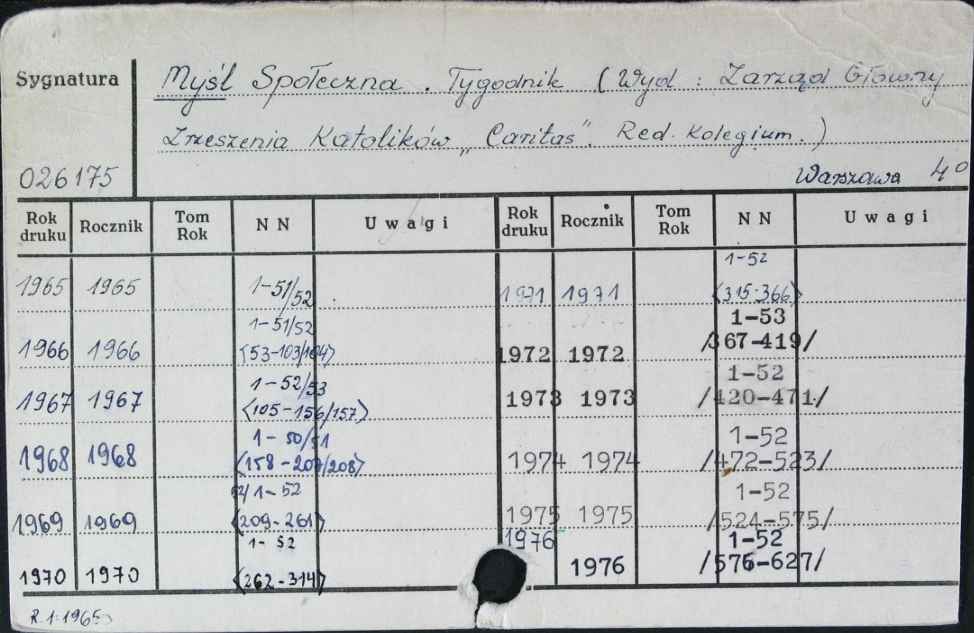 Sygnatura
Myśl Społeczna. Tygodnik (Wyd: Zarząd Główny
Zrzeszenia Katolików „Caritas". Red. Kolegium.)
026175
Warszawa 4°
Rok druku Rocznik Tom Rok NN Uwagi Rok druku Rocznik Tom Rok NN Uwagi
1965 1965 1-51/52
1-51/52
1966 1966 <53-103/104>
1-52/53
1967 1967 <105-156/157>
1-50/51
1968 1968 <158-207/208>
52/1-52
1969 1969 <209-261>
1-52
1970 1970 <262-314>
1-52
1971 1971 <315-366>
1-53
1972 1972 /367-419/
1-52
1973 1973 /420-471/
1-52
1974 1974 /472-523/
1-52
1975 1975 /524-575/
1976 1-52
1976 /576-627/
R.1:1965